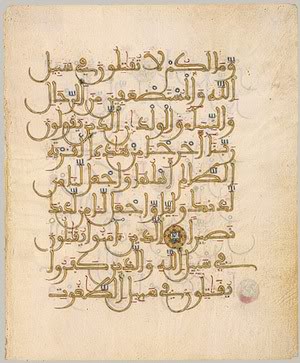 وما لكم لا تقتلون في سبيل
الله والمستضعفين من الرجال
والنسا والولدن الذين يقولون
ربنا اخرجنا من هذه القرية
الظالم اهلها واجعل لنا من
لدنك وليا واجعل لنا من لدنك
نصيرا الذين امنوا يقتلون
في سبيل الله والذين كفروا
يقتلون في سبيل الطغوت